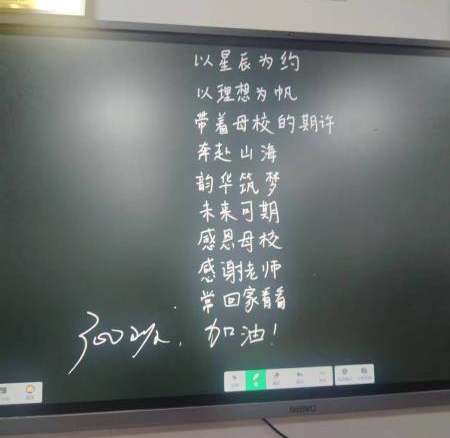 以星辰为约
以理想为帆
带着母校的期许
奔赴山海
韵华筑梦
未来可期
感恩母校
感谢老师
常回家看看
加油！
seewo